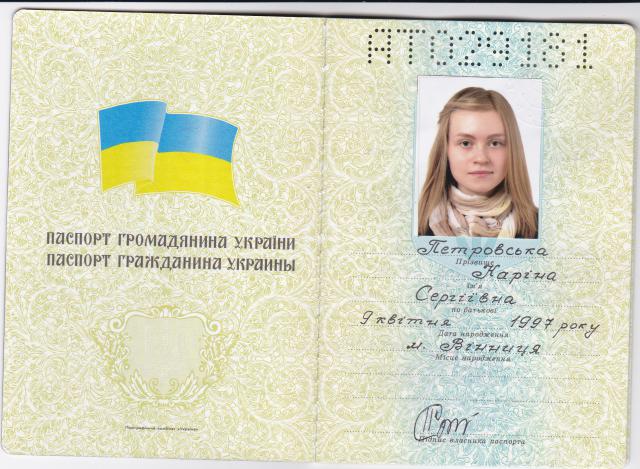 ПАСПОРТ ГРОМАДЯНИНА УКРАЇНИ
ПАСПОРТ ГРАЖДАНИНА УКРАИНЫ
АТ029181
Петровська
Прізвище
Каріна
Ім'я
Сергіївна
по батькові
9 квітня 1997 року
Дата народження
м. Вінниця
Місце народження
Підпис власника паспорта